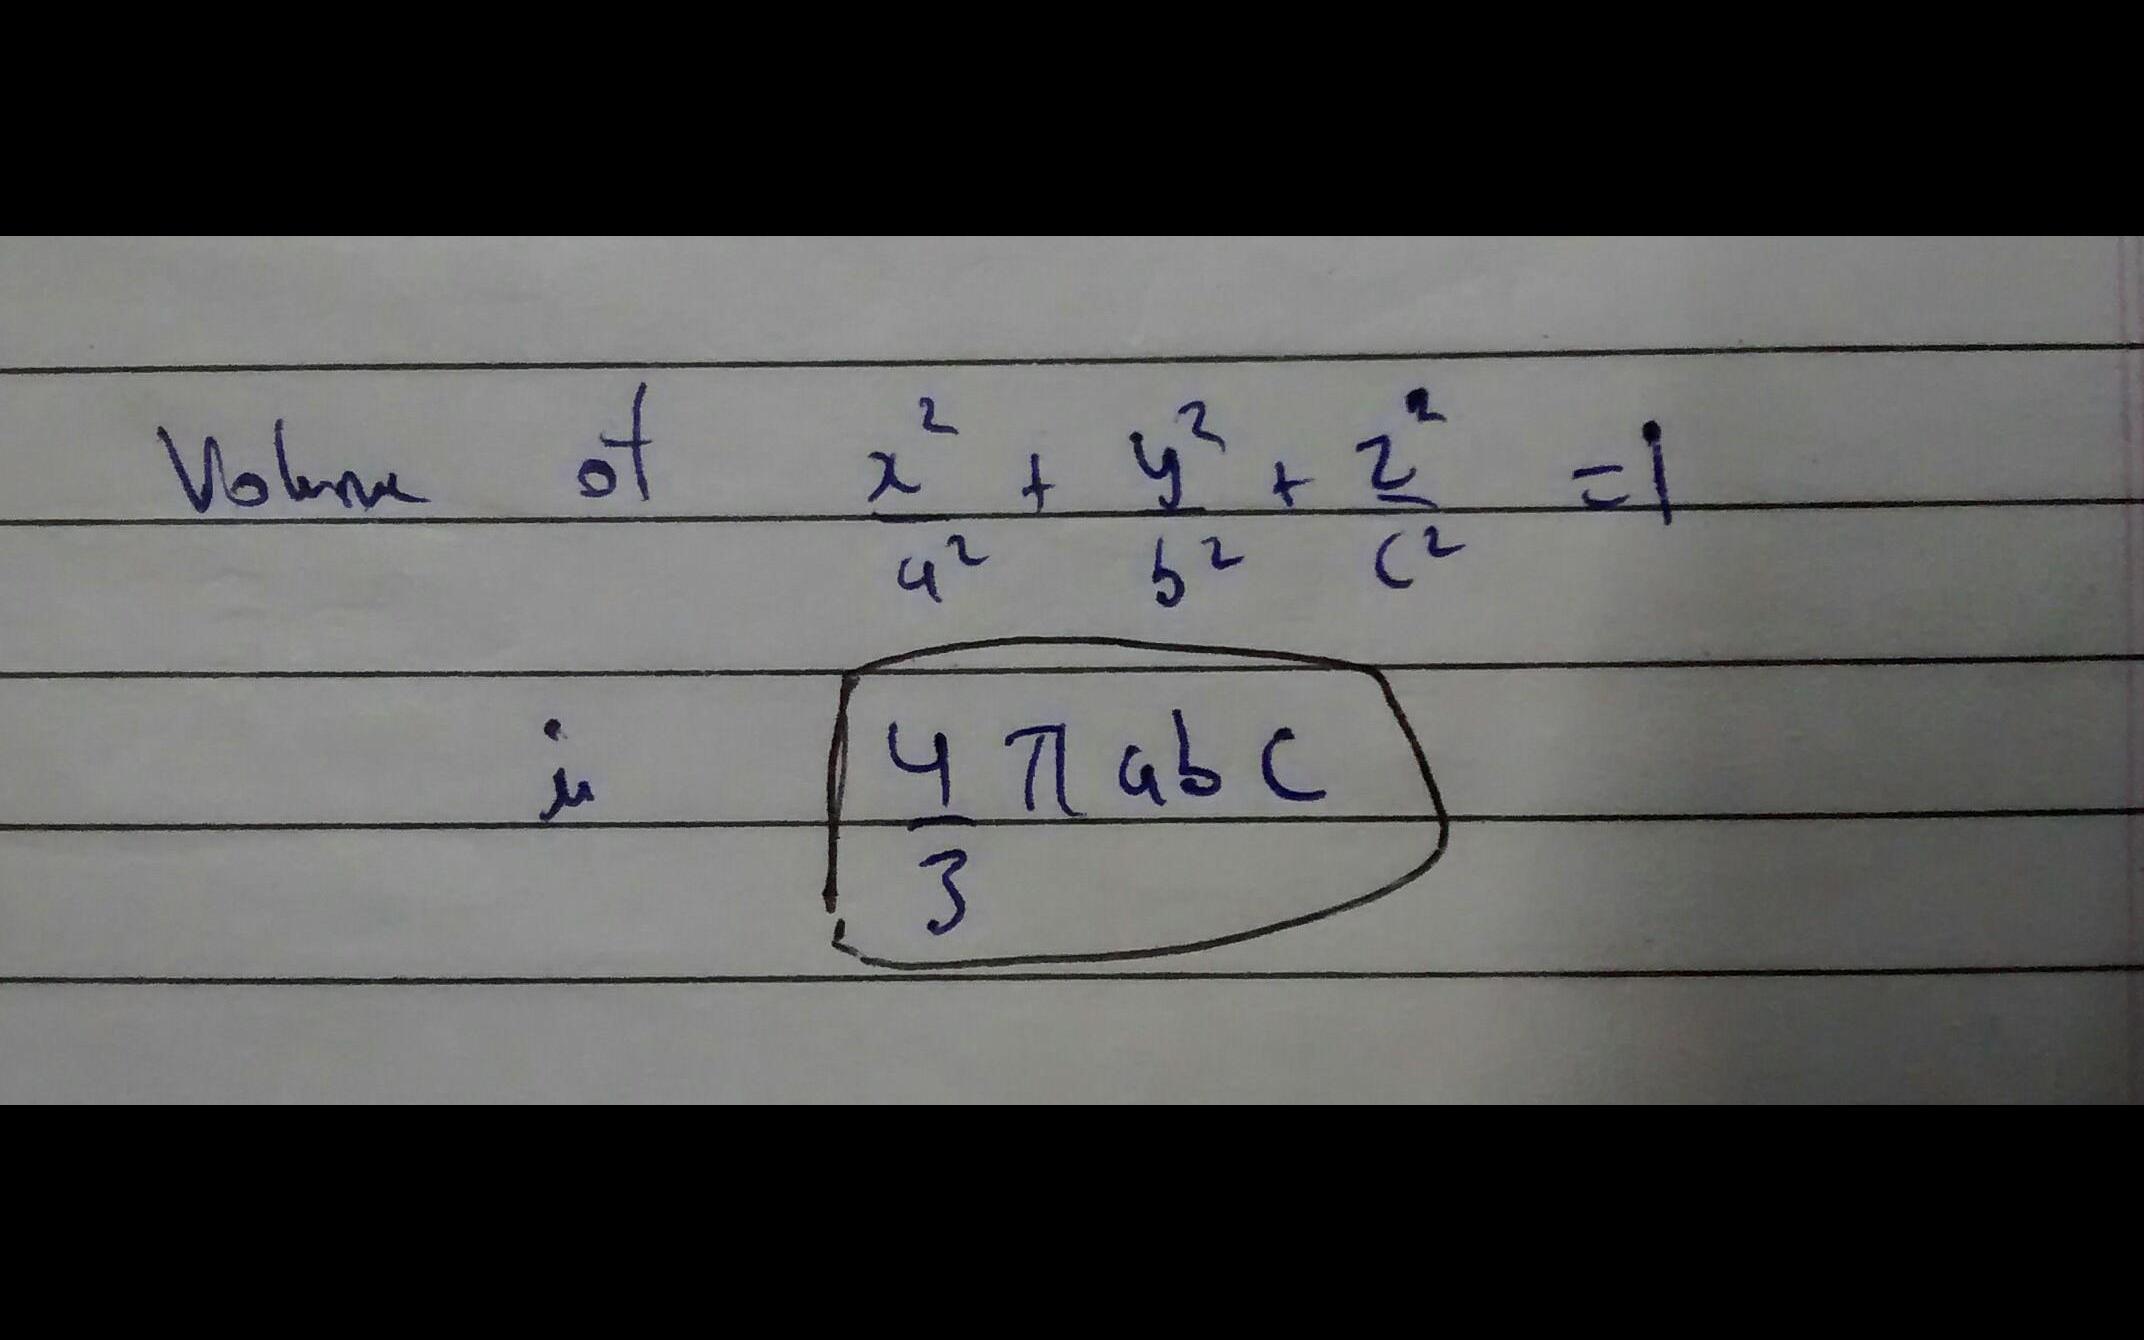 Volume of x²/a² + y²/b² + z²/c² = 1
is 4/3 π abc